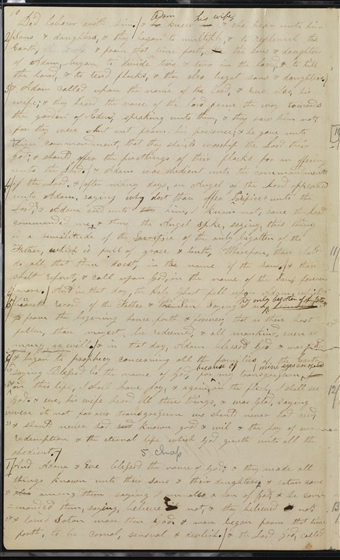 did labour with him. & Adam knew his wife & she bare unto him
sons & daughters, & they began to multiply, & to replenish the
earth, & from that time forth, the sons & daughters
of Adam, began to divide two & two in the land, & to till
the land, & to tend flocks, & they also begat sons & daughters,
& Adam called upon the name of the Lord, & Eve also, his
wife, & they heard the voice of the Lord from the way toward
the garden of Eden, speaking unto them, & they saw him not,
for they were shut out from his presence, & he gave unto
them commandment, that they should worship the Lord their
God, & should offer the firstlings of their flocks for an offering
unto the Lord, & Adam was obedient unto the commandments
of the Lord, & after many days, an Angel of the Lord appeared
unto Adam, saying why dost thou offer sacrifices unto the
Lord, & Adam said unto him, I know not, save the Lord
commanded me, & the Angel spake, saying, this thing
is a similitude of the Sacrifice of the only begotten of the
Father, which is full of grace & truth, Wherefore, thou shalt
do all that thou doest, in the name of the Son, & thou
shalt repent, & call upon God, in the name of the Son forever
more, And in that day the holy ghost fell upon Adam
record of the Father & the Son, saying I am the only begotten of the father
from the beginning henceforth & forever, that as thou hast
fallen, thou mayest be redeemed, & all mankind, even as
many as will, & in that day, Adam blessed God, &
& began to prophecy concerning all the families of the earth,
saying Blessed be the name of God, for because of my transgression my eyes are opened
in this life, I shall have joy, & again, in the flesh, I shall see
God, & Eve, his wife heard all these things, & was glad, saying
were it not for our transgression we should never had seed
& should never had known good & evil & the joy of our
redemption & the eternal life which God giveth unto all the
obedient.
And Adam & Eve blessed the name of God, & they made all
things known unto their sons & their daughters, & satan came
among them, saying I am also a son of God, & he com
manded them, saying, believe it not, & they believed it not
& loved Satan more than God, & men began from that time
forth, to be carnal, sensual & devilish, & the Lord God, called